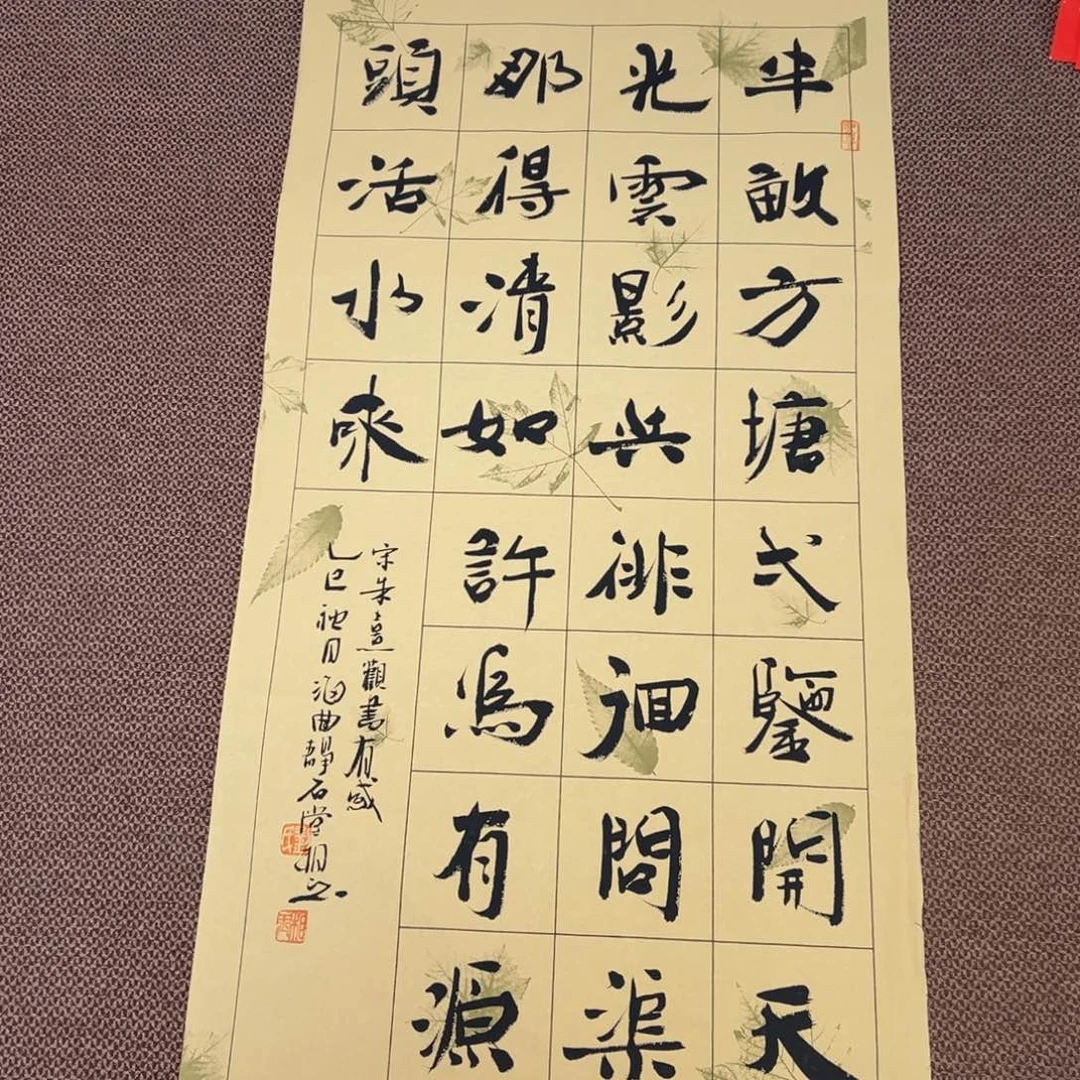 半畝方塘弌鑒開天
光雲影共徘徊問渠
那得清如許為有源
頭活水來
宋朱熹觀書有感
乙巳 月 曲靜石堂